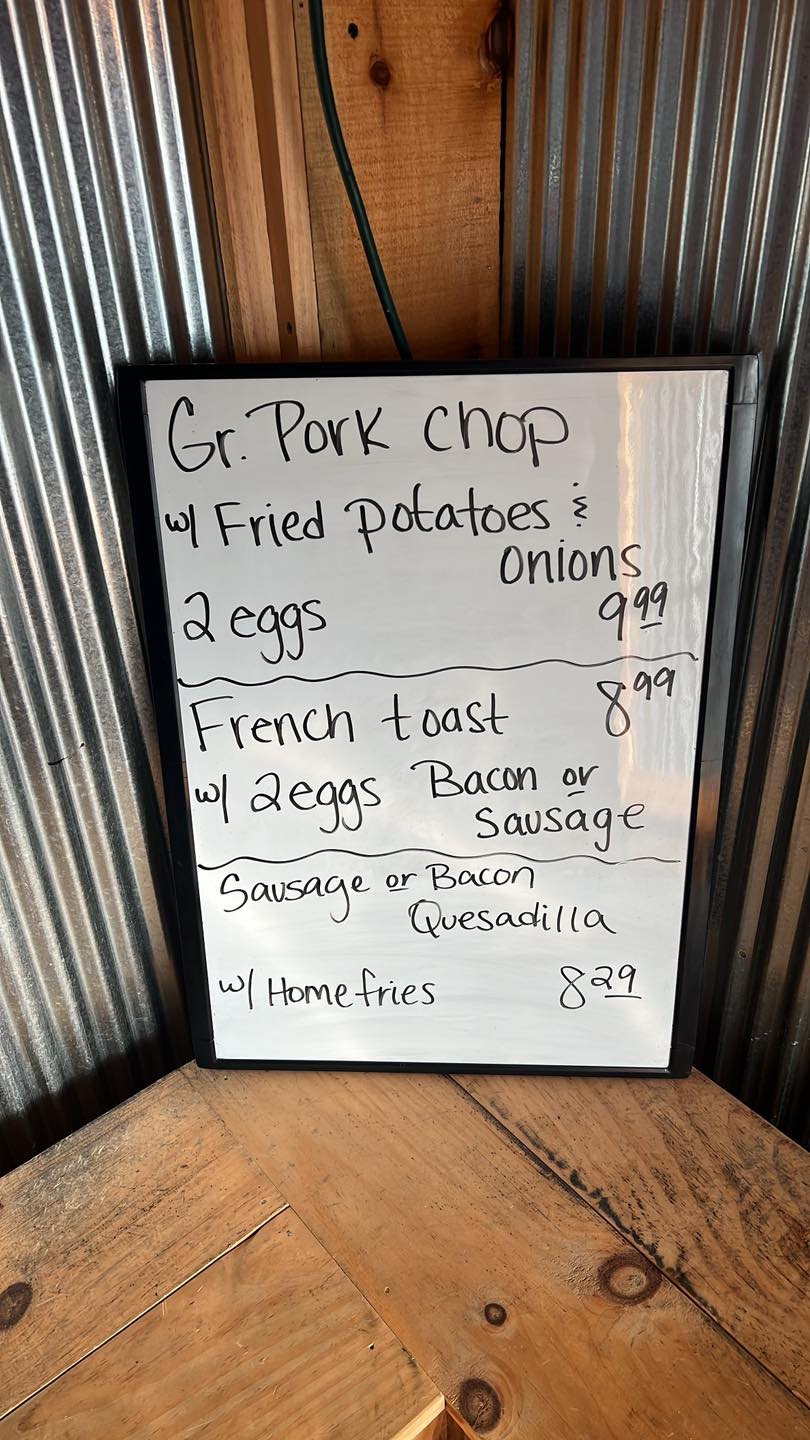 Gr. Pork chop
w/ Fried potatoes &
onions
2 eggs 9.99
French toast 8.99
w/ 2 eggs Bacon or
Sausage
Sausage or Bacon
Quesadilla
w/ Homefries 8.29